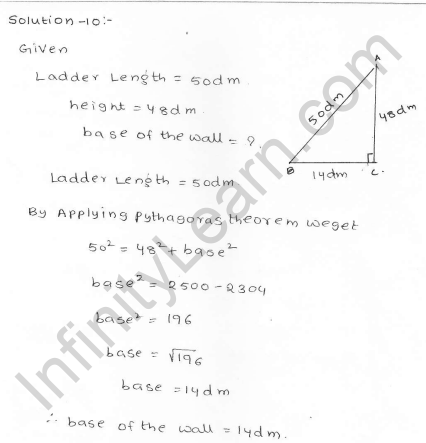 Solution-10:-
Given
Ladder Length = 50dm.
height = 48dm.
base of the wall = ?.
Ladder Length = 50dm
By Applying pythagoras theorem weget
50² = 48² + base²
base² = 2500 - 2304
base² = 196
base = √196
base = 14dm
∴ base of the wall = 14dm.
A
50dm
48dm
B
14dm
C.
InfinityLearn.com